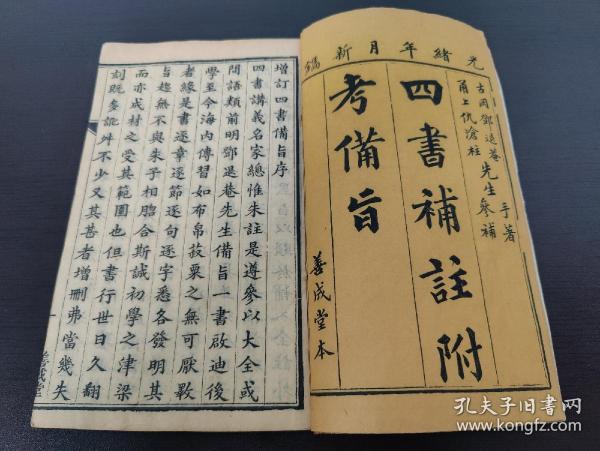 光緒年月新鐫
古岡鄧退菴
甬上仇滄柱先生參補手著
四書補註附
考備旨
善成堂本
增訂四書備旨序
四書講義名家總惟朱註是遵參以大全或
問語類前明鄧退菴先生備旨一書啟迪後
學至今海內傳習如布帛菽粟之無可厭斁
者緣是書逐章逐節逐句逐字悉各發明其
旨趣無不與朱子相脗合斯誠初學之津梁
而亦成材之受其範圍也但書行世日久翻
刻既多訛舛不少又其甚者增刪弗當幾失
善成堂
孔夫子旧书网
www.kongfz.com